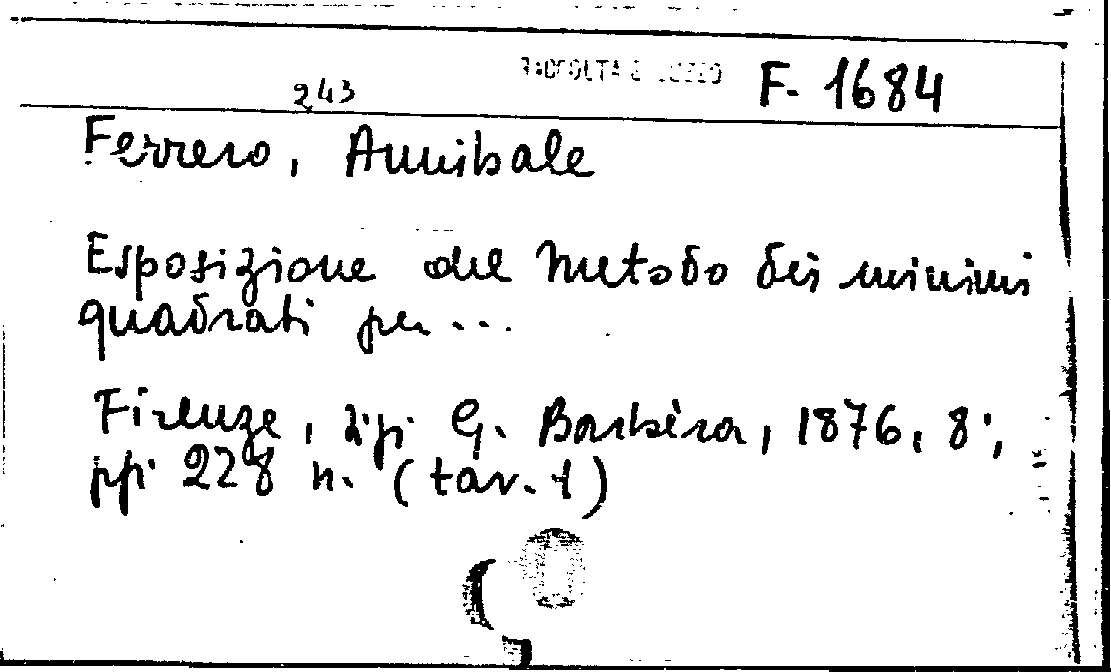 243 RACCOLTA F. 1684
Ferrero, Annibale
Esposizione del Metodo dei minimi
quadrati per ...
Firenze, tip. G. Barbèra, 1876, 8°,
pp. 228 n. (tav. 1)